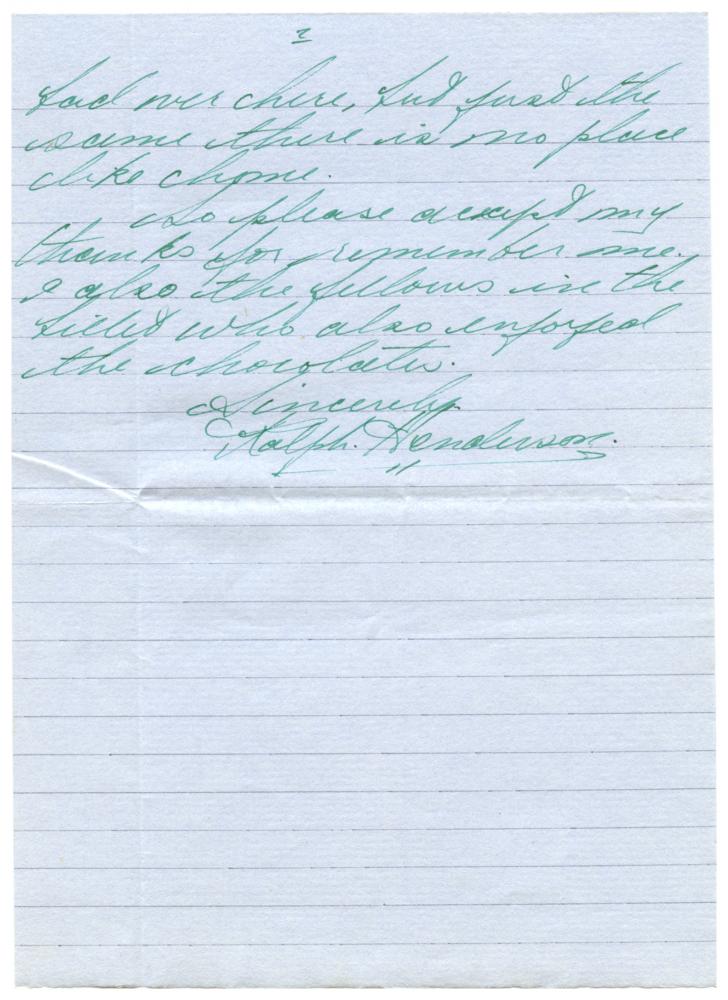 2
bad over here, but just the
same there is no place
like home.
So please accept my
thanks for remember me.
& also the fellows in the
billet who also enjoyed
the chocolates.
Sincerely
Ralph. Henderson.